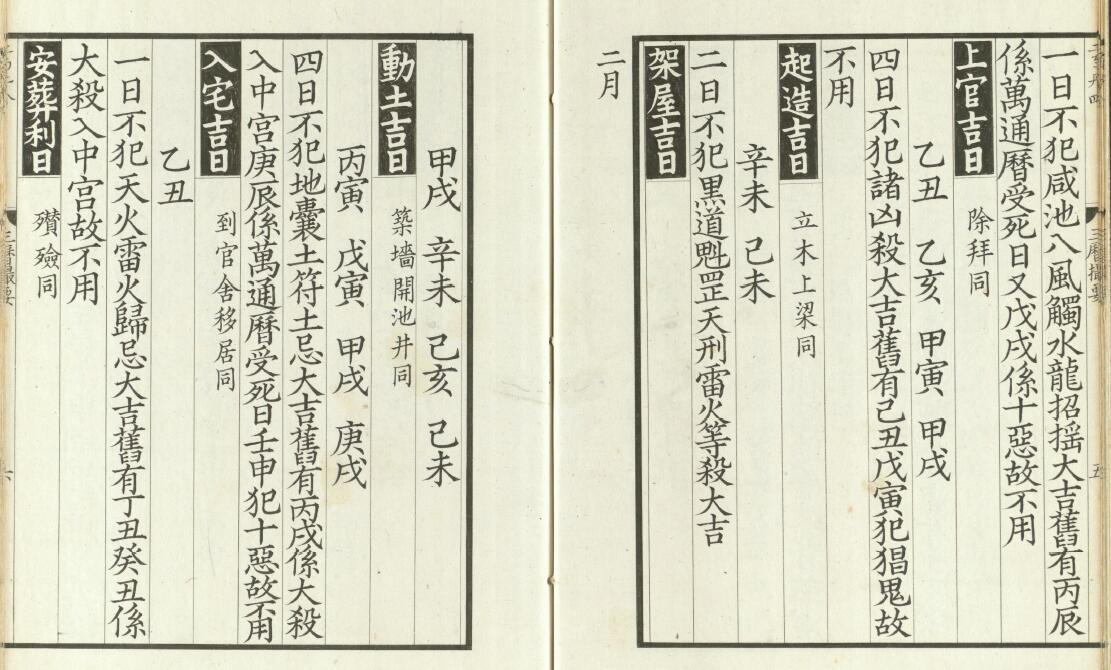 一日不犯咸池八風觸水龍招摇大吉舊有丙辰
係萬通曆受死日又戊戌係十惡故不用
上官吉日 除拜同
乙丑 乙亥 甲寅 甲戌
四日不犯諸凶殺大吉舊有己丑戊寅犯猖鬼故
不用
起造吉日 立木上梁同
辛未 己未
二日不犯黑道魁罡天刑雷火等殺大吉
架屋吉日
二月
甲戌 辛未 己亥 己未
動土吉日 築墻開池井同
丙寅 戊寅 甲戌 庚戌
四日不犯地囊土符土忌大吉舊有丙戌係大殺
入中宫庚辰係萬通曆受死日壬申犯十惡故不用
入宅吉日 到官舍移居同
乙丑
一日不犯天火雷火歸忌大吉舊有丁丑癸丑係
大殺入中宫故不用
安葬利日 殯殮同
三曆撮要
五
六